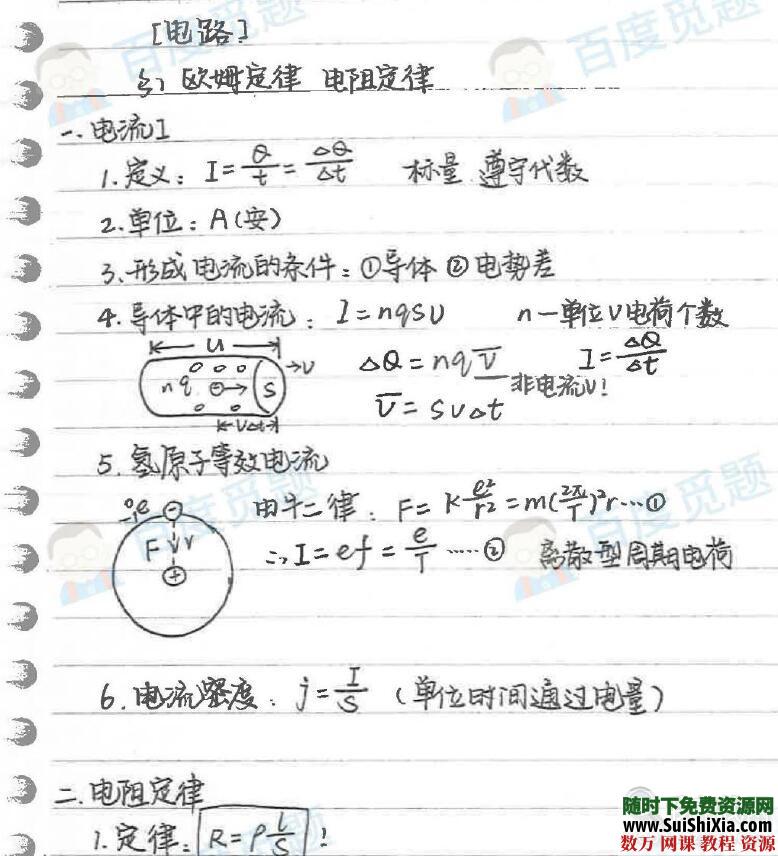 [电路]
§1 欧姆定律 电阻定律
一.电流I
1.定义: I=Q/t=ΔQ/Δt 标量 遵守代数
2.单位: A(安)
3.形成电流的条件: ①导体 ②电势差
4.导体中的电流: I=nqSv n—单位V电荷个数
U
nq S →v ΔQ=nqV̅ I=ΔQ/Δt
V̅=SvΔt 非电流v!
vΔt
5.氢原子等效电流
⁰₋₁e 由牛二律: F=k e²/r²=m(2π/T)²r…①
F v ∴I=ef=e/T……② 离散型周期电荷
6.电流密度: j=I/S (单位时间通过电量)
二.电阻定律
1.定律: R=ρL/S !
百度觅题
百度觅题
百度觅题
百度觅题
随时下免费资源网
www.SuiShiXia.com
数万 网课 教程 资源